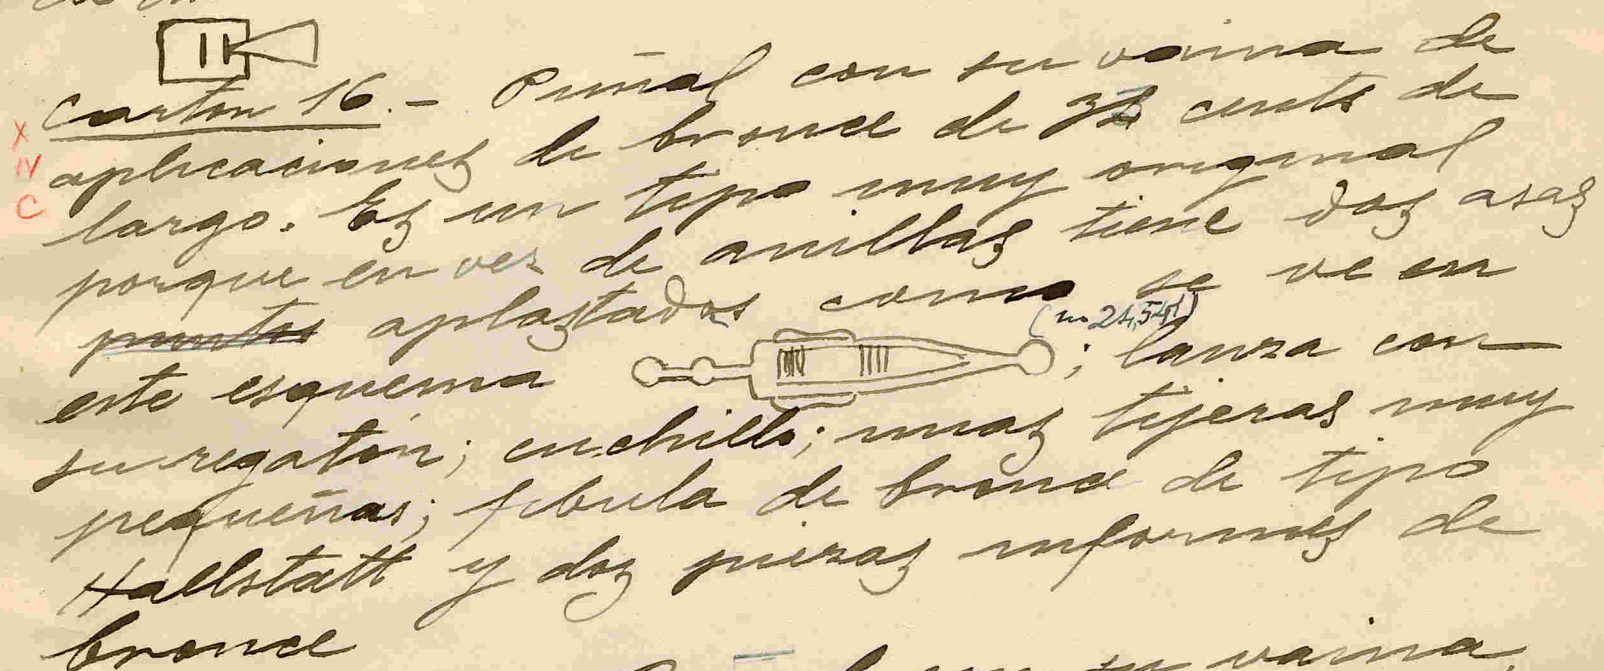 Carton 16.- Puñal con su vaina de
X
IV
C
aplicaciones de bronce de cents de
largo. Es un tipo muy original
porque en vez de anillas tiene dos asas
aplastados como se ve en
este esquema ; lanza con
su regatón; cuchillo; unas tijeras muy
pequeñas; fibula de bronce de tipo
Hallstatt y dos piezas informes de
bronce
su vaina